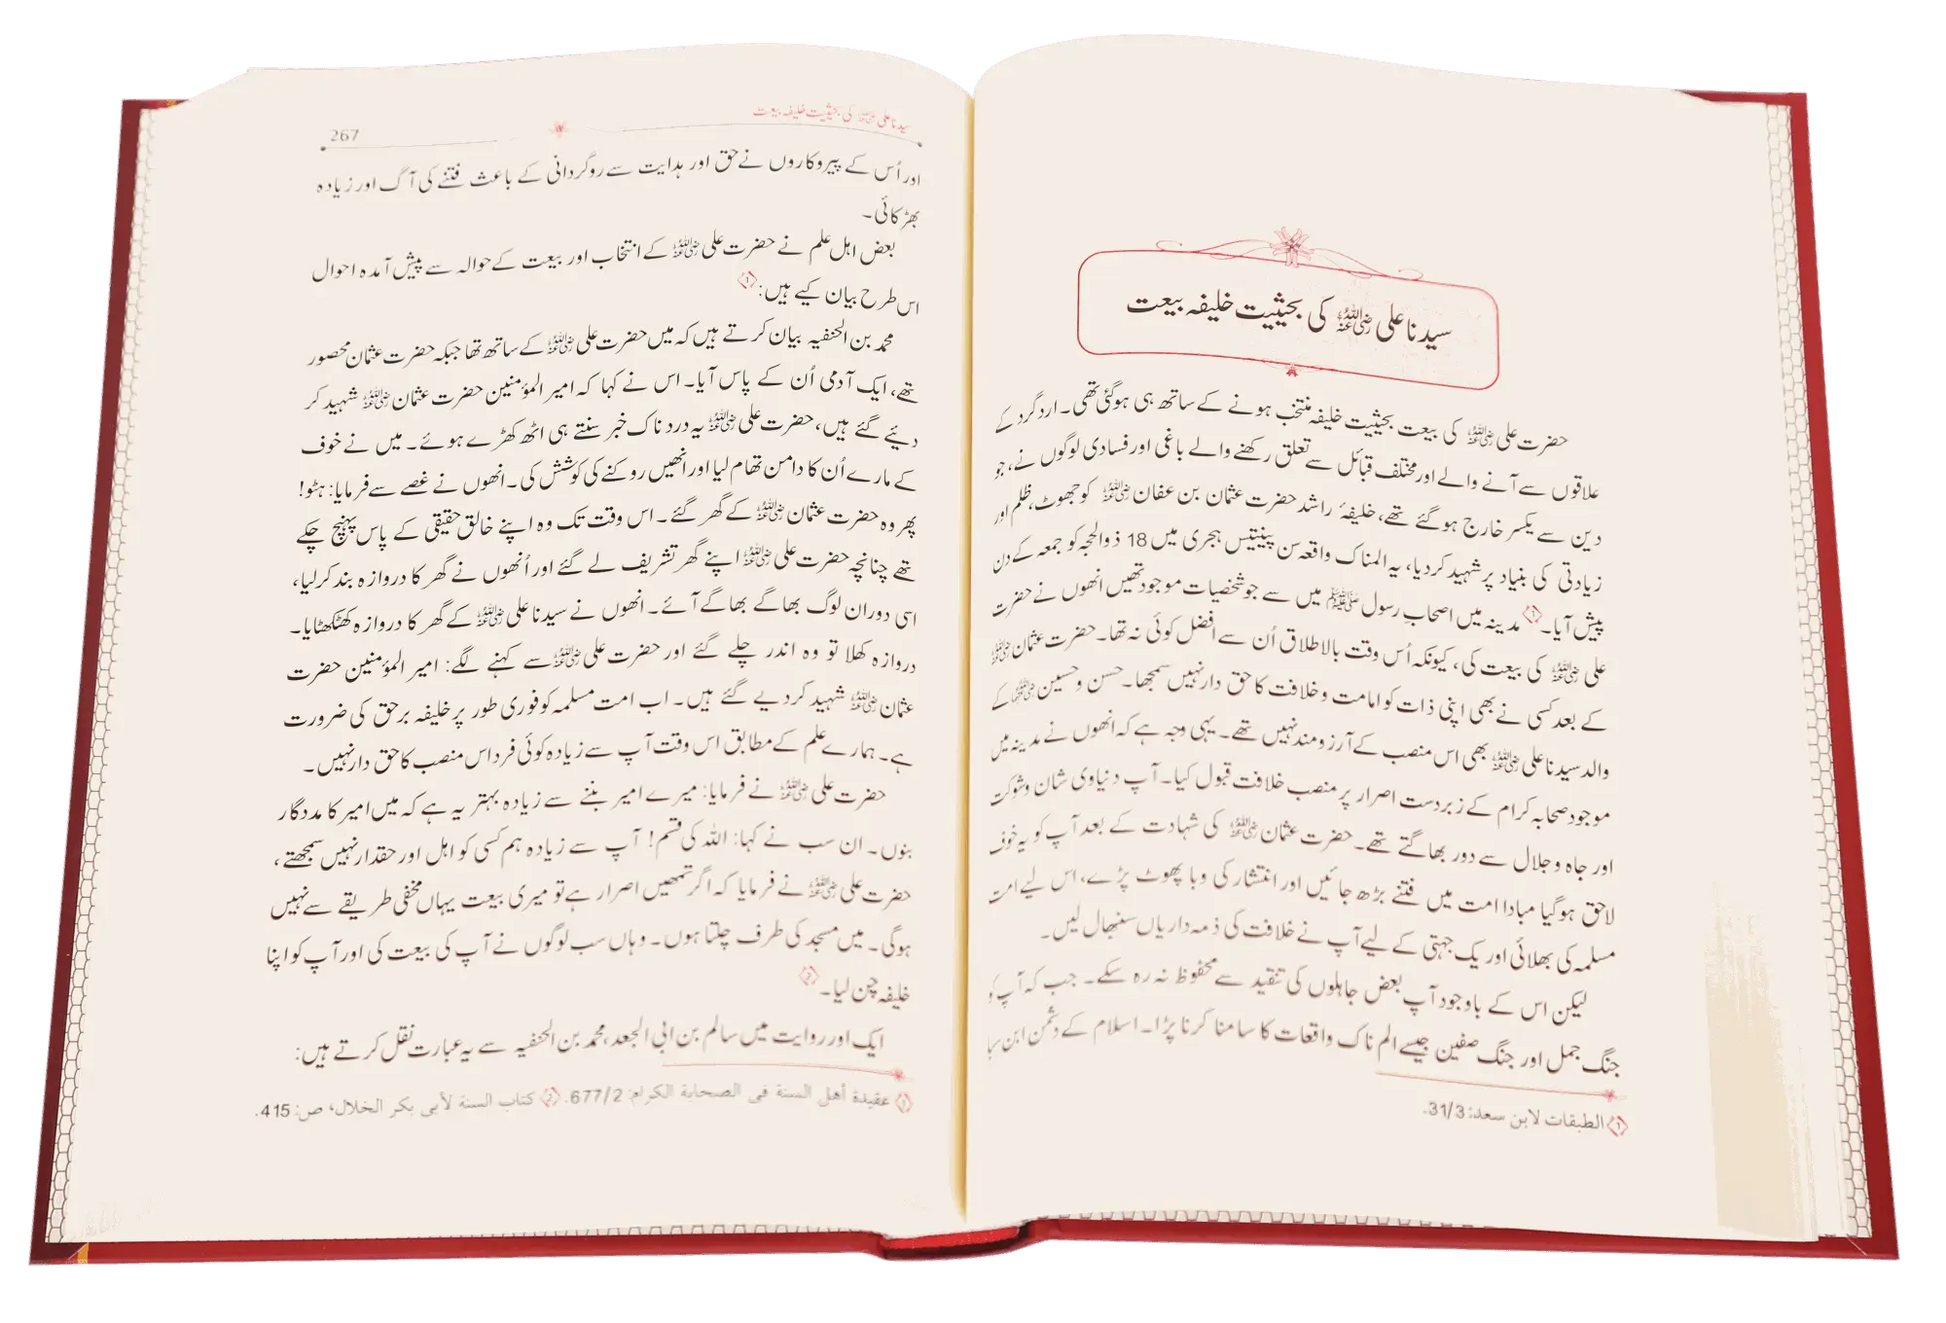 سیدنا علی رضی اللہ عنہ کی بحیثیت خلیفہ بیعت
حضرت علی رضی اللہ عنہ کی بیعت بحیثیت خلیفہ منتخب ہونے کے ساتھ ہی ہو گئی تھی۔ اردگرد کے
علاقوں سے آنے والے اور مختلف قبائل سے تعلق رکھنے والے باغی اور فسادی لوگوں نے، جو
دین سے یکسر خارج ہو گئے تھے، خلیفۂ راشد حضرت عثمان بن عفان رضی اللہ عنہ کو جھوٹ، ظلم اور
زیادتی کی بنیاد پر شہید کر دیا، یہ المناک واقعہ سن پینتیس ہجری میں 18 ذوالحجہ کو جمعہ کے دن
پیش آیا۔ ① مدینہ میں اصحاب رسول ﷺ میں سے جو شخصیات موجود تھیں انھوں نے حضرت
علی رضی اللہ عنہ کی بیعت کی، کیونکہ اُس وقت بالاطلاق اُن سے افضل کوئی نہ تھا۔ حضرت عثمان رضی اللہ عنہ
کے بعد کسی نے بھی اپنی ذات کو امامت و خلافت کا حق دار نہیں سمجھا۔ حسن و حسین رضی اللہ عنہما کے
والد سیدنا علی رضی اللہ عنہ بھی اس منصب کے آرزو مند نہیں تھے۔ یہی وجہ ہے کہ انھوں نے مدینہ میں
موجود صحابہ کرام کے زبردست اصرار پر منصب خلافت قبول کیا۔ آپ دنیاوی شان و شوکت
اور جاہ و جلال سے دور بھاگتے تھے۔ حضرت عثمان رضی اللہ عنہ کی شہادت کے بعد آپ کو یہ خوف
لاحق ہو گیا مبادا امت میں فتنے بڑھ جائیں اور انتشار کی وبا پھوٹ پڑے، اس لیے امت
مسلمہ کی بھلائی اور یک جہتی کے لیے آپ نے خلافت کی ذمہ داریاں سنبھال لیں۔
لیکن اس کے باوجود آپ بعض جاہلوں کی تنقید سے محفوظ نہ رہ سکے۔ جب کہ آپ کو
جنگ جمل اور جنگ صفین جیسے الم ناک واقعات کا سامنا کرنا پڑا۔ اسلام کے دشمن ابن سبا
① الطبقات لابن سعد: 31/3.
سیدنا علی رضی اللہ عنہ کی بحیثیت خلیفہ بیعت 267
اور اُس کے پیروکاروں نے حق اور ہدایت سے روگردانی کے باعث فتنے کی آگ اور زیادہ
بھڑکائی۔
بعض اہل علم نے حضرت علی رضی اللہ عنہ کے انتخاب اور بیعت کے حوالہ سے پیش آمدہ احوال
اس طرح بیان کیے ہیں: ①
محمد بن الحنفیہ بیان کرتے ہیں کہ میں حضرت علی رضی اللہ عنہ کے ساتھ تھا جبکہ حضرت عثمان محصور
تھے، ایک آدمی اُن کے پاس آیا۔ اس نے کہا کہ امیر المؤمنین حضرت عثمان رضی اللہ عنہ شہید کر
دیئے گئے ہیں، حضرت علی رضی اللہ عنہ یہ درد ناک خبر سنتے ہی اٹھ کھڑے ہوئے۔ میں نے خوف
کے مارے اُن کا دامن تھام لیا اور انھیں روکنے کی کوشش کی۔ انھوں نے غصے سے فرمایا: ہٹو!
پھر وہ حضرت عثمان رضی اللہ عنہ کے گھر گئے۔ اس وقت تک وہ اپنے خالق حقیقی کے پاس پہنچ چکے
تھے چنانچہ حضرت علی رضی اللہ عنہ اپنے گھر تشریف لے گئے اور اُنھوں نے گھر کا دروازہ بند کر لیا،
اسی دوران لوگ بھاگے بھاگے آئے۔ انھوں نے سیدنا علی رضی اللہ عنہ کے گھر کا دروازہ کھٹکھٹایا۔
دروازہ کھلا تو وہ اندر چلے گئے اور حضرت علی رضی اللہ عنہ سے کہنے لگے: امیر المؤمنین حضرت
عثمان رضی اللہ عنہ شہید کر دیے گئے ہیں۔ اب امت مسلمہ کو فوری طور پر خلیفہ برحق کی ضرورت
ہے۔ ہمارے علم کے مطابق اس وقت آپ سے زیادہ کوئی فرد اس منصب کا حق دار نہیں۔
حضرت علی رضی اللہ عنہ نے فرمایا: میرے امیر بننے سے زیادہ بہتر یہ ہے کہ میں امیر کا مددگار
بنوں۔ ان سب نے کہا: اللہ کی قسم! آپ سے زیادہ ہم کسی کو اہل اور حقدار نہیں سمجھتے،
حضرت علی رضی اللہ عنہ نے فرمایا کہ اگر تمھیں اصرار ہے تو میری بیعت یہاں مخفی طریقے سے نہیں
ہو گی۔ میں مسجد کی طرف چلتا ہوں۔ وہاں سب لوگوں نے آپ کی بیعت کی اور آپ کو اپنا
خلیفہ چن لیا۔ ②
ایک اور روایت میں سالم بن ابی الجعد، محمد بن الحنفیہ سے یہ عبارت نقل کرتے ہیں:
① عقيدة أهل السنة في الصحابة الكرام: 677/2. ② كتاب السنة لأبي بكر الخلال، ص: 415.